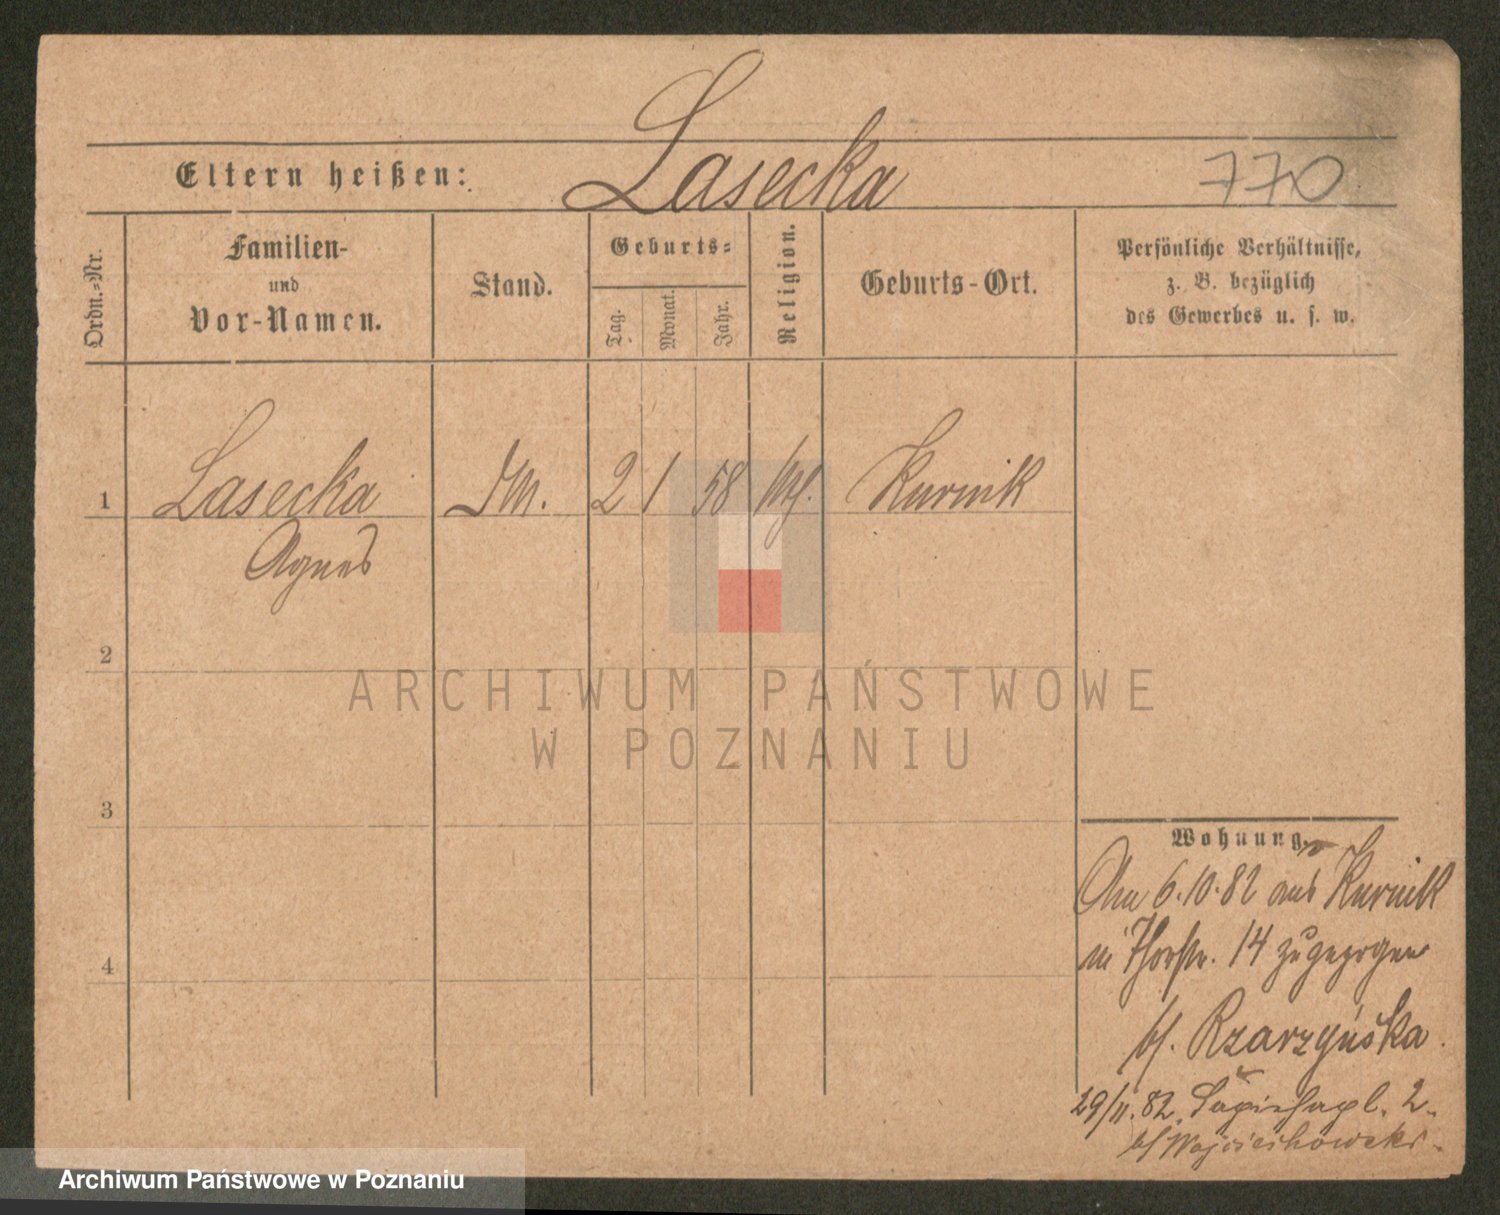 Lasecka
Eltern heißen:
770
Ordn.-Nr.
Familien-
und
Vor-Namen.
Stand.
Geburts-
Tag.
Monat.
Jahr.
Religion.
Geburts-Ort.
Persönliche Verhältnisse,
z. B. bezüglich
des Gewerbes u. s. w.
1 Lasecka 2 1 58 Kurnik
Agnes
2
3
4
Wohnung.
Am 6.10.82 aus Kurnik
in Thorstr. 14 zugezogen
b/. Rzarzyńska.
29/11.82. Sapiehapl. 2.
b/ Wojciechowski.
ARCHIWUM PAŃSTWOWE
W POZNANIU
Archiwum Państwowe w Poznaniu